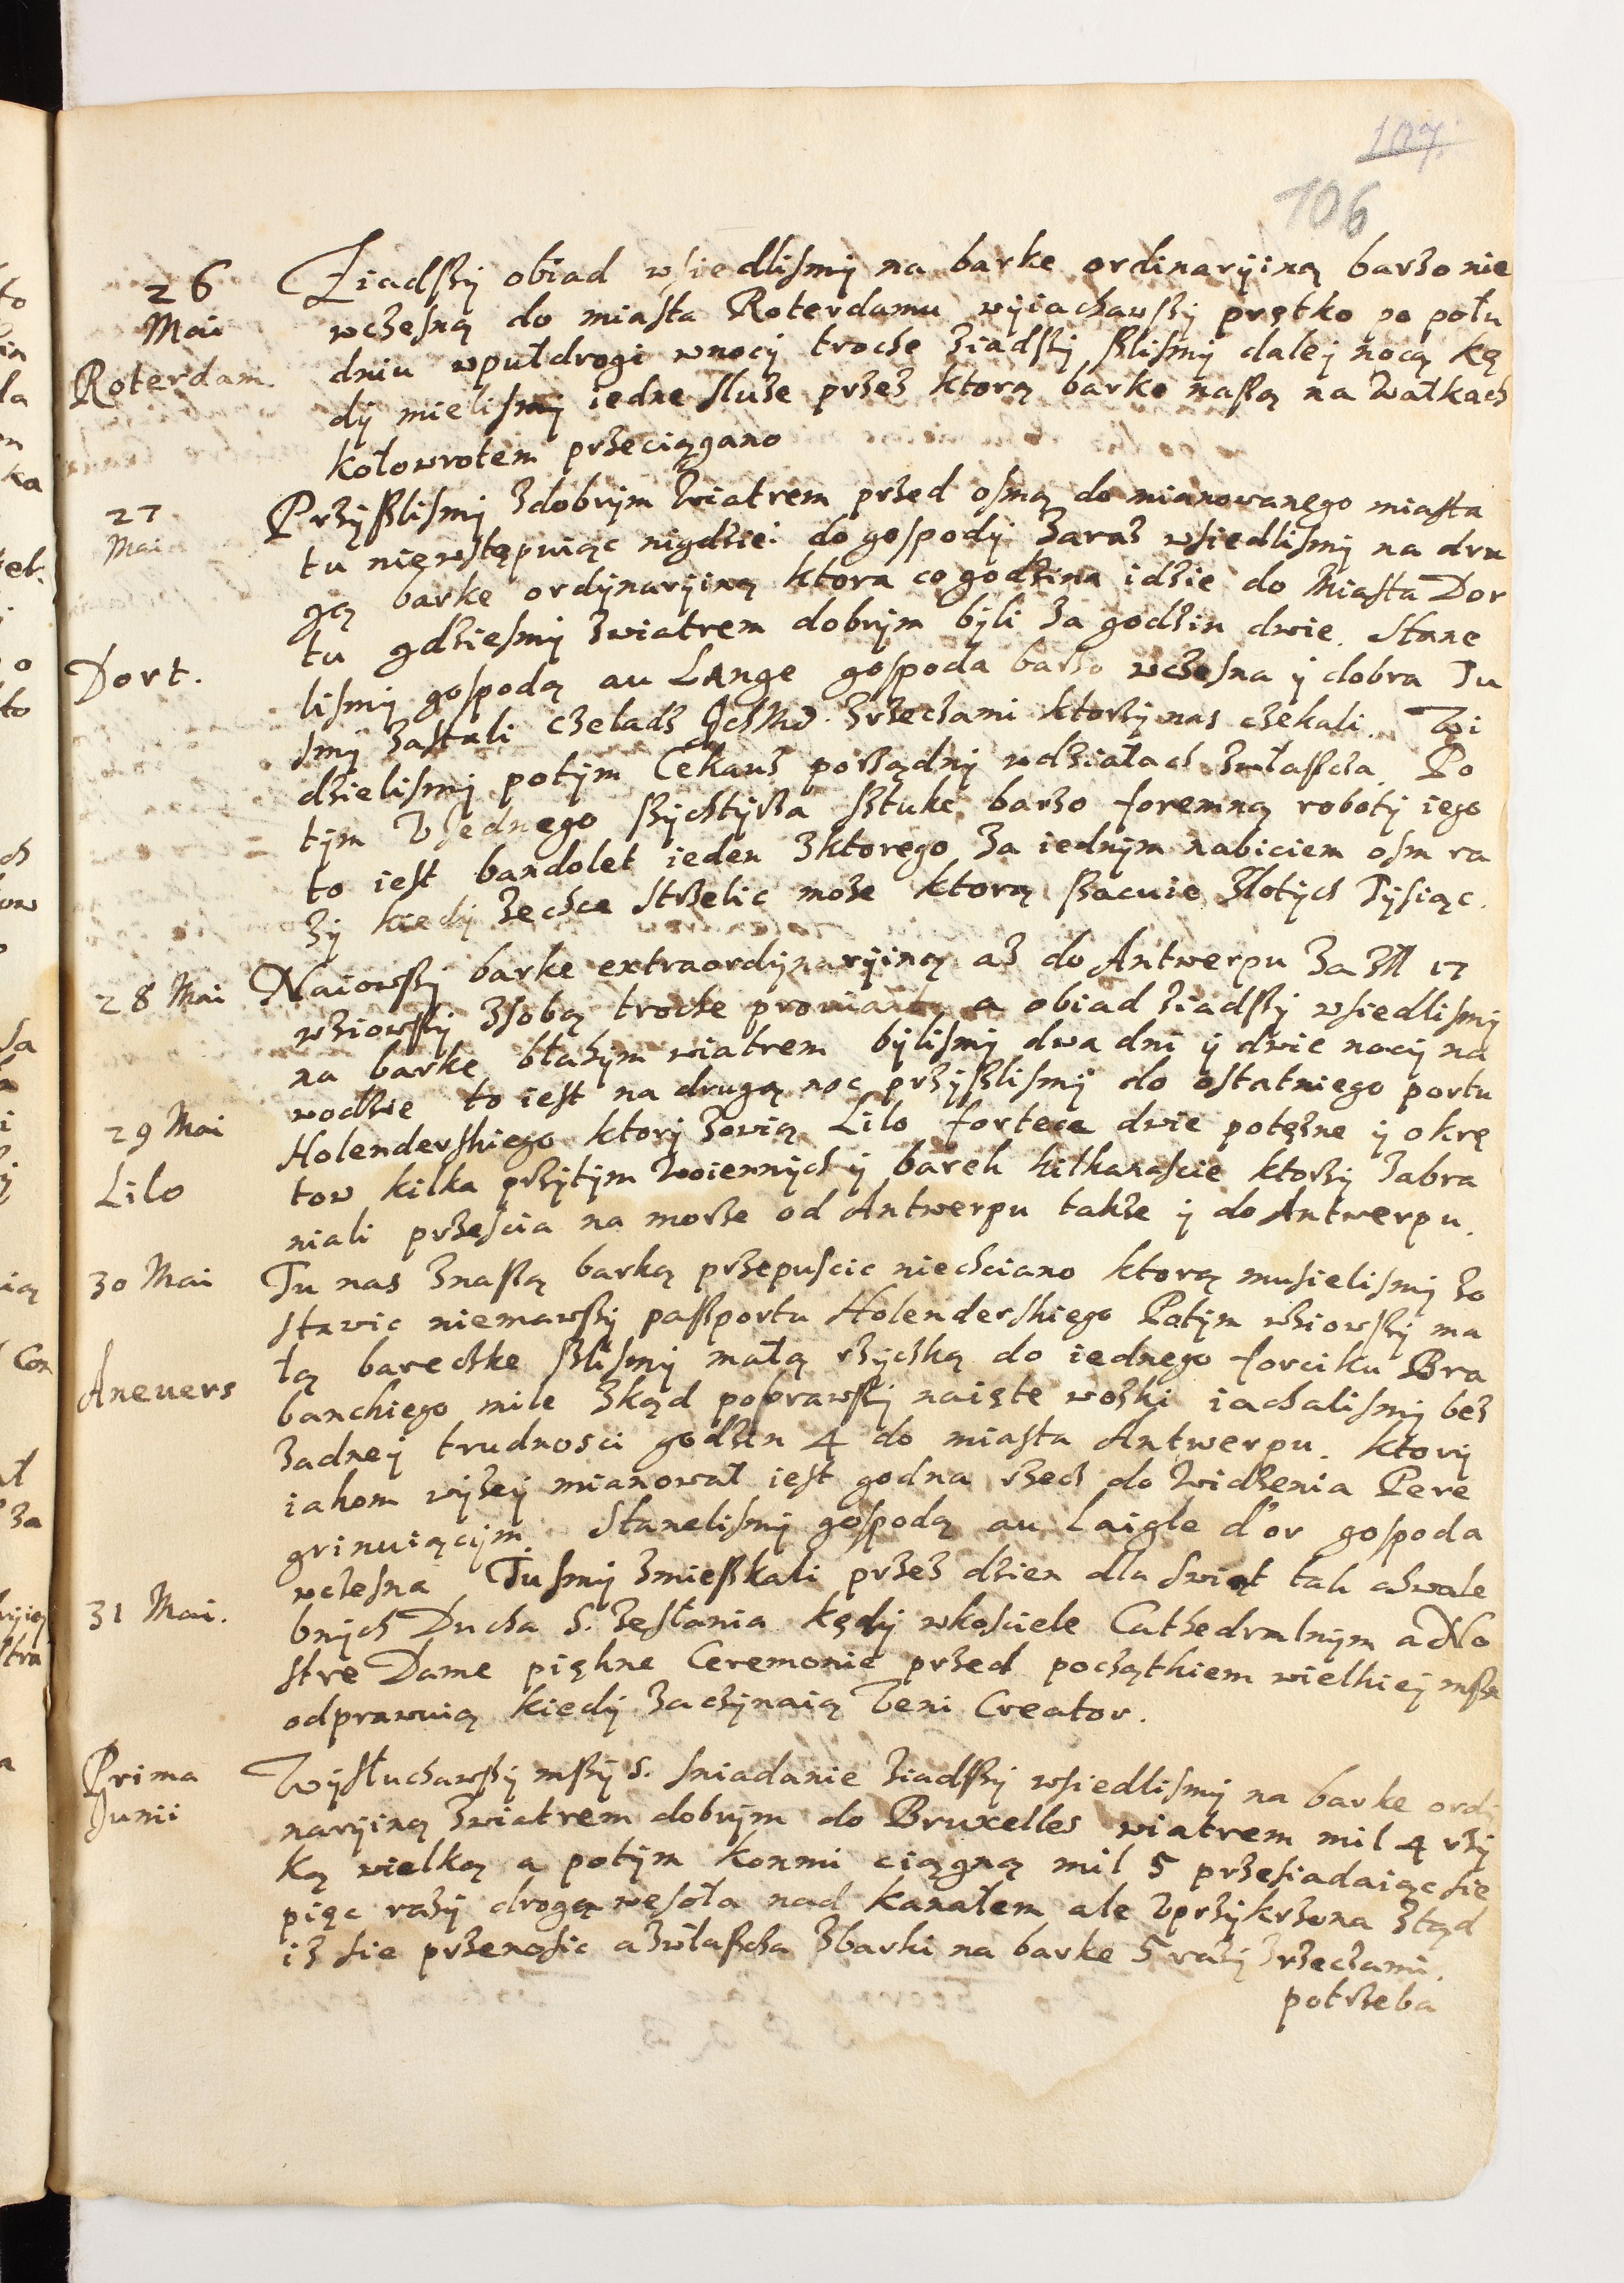 107.
106
26 Mai
Roterdam.
Ziadſzÿ obiad wsiedliſmÿ na barke ordinarÿiną barzo nie
wczeſną do miaſta Roterdamu wÿiachawſzÿ prętko po połu
dniu wpułdrogi wnocÿ troche ziadſzÿ ſzliſmÿ dalej nocą kę
dÿ mieliſmÿ iedne ſluze przez ktorą barke naſzą na wałkach
kołowrotem przeciągano
27 Mai
Przÿſzliſmÿ zdobrÿm wiatrem przed oſmą do mianowanego miaſta
tu niewſtępuiąc nigdzie do goſpodÿ zaraz wſiedliſmÿ na dru
gą barke ordÿnarÿiną ktora co godzina idzie do Miaſta Dor
tu gdzieſmÿ zwiatrem dobrÿm bÿli za godzin dwie. Stane
Dort.
liſmÿ goſpodą au Lange goſpoda barzo wczeſna ÿ dobra Tu
ſmÿ zaſtali czeladz JchMci zrzeczami ktorzÿ nas czekali. Wi
dzieliſmÿ potÿm Cekauz porządnÿ wdziałach zwłaſzcza. Po
tÿm v Jednego ſzÿchtÿrza ſztuke barzo foremną robotÿ iego
to ieſt bandolet ieden zktorego za iednÿm nabiciem oſm ra
zÿ kiedÿ zechce ſtrzelic moze ktorą ſzacuie złotÿch Tÿſiąc.
28 Mai
Naiowſzÿ barke extraordÿnarÿiną az do Antwerpu za zł 17
wziowſzÿ zſobą troche prowiantu a obiad ziadſzÿ wſiedliſmÿ
na barke błahÿm wiatrem bÿliſmÿ dwa dni ÿ dwie nocÿ na
wodzie to ieſt na drugą noc przÿſzliſmÿ do oſtatniego portu
29 Mai
Holenderſkiego ktorÿ zowią Lilo fortece dwie potęzne ÿ okrę
Lilo
tow kilka przÿtÿm woiennÿch ÿ barek kilkanaſcie ktorzÿ zabra
niali przeſcia na morze od Antwerpu takze ÿ do Antwerpu.
30 Mai
Tu nas znaſzą barką przepuſcic niechciano ktorą muſieliſmÿ zo
ſtawic niemawſzÿ paſzportu Holenderſkiego Potÿm wziowſzÿ ma
łą bareczke ſzliſmÿ małą rzÿczką do iednego forciku Bra
Aneuers
banckiego mile zkąd poprawſzÿ naięte wozki iachaliſmÿ bez
zadneÿ trudnosci godzin 4 do miaſta Antwerpu. ktorÿ
iakom wÿzeÿ mianował ieſt godna rzecz do widzenia Pere
grinuiącÿm. Staneliſmÿ goſpodą au Laigle d'or goſpoda
wczeſna Tuſmÿ zmieſzkali przez dzien dla ſwiąt tak chwale
31 Mai.
bnÿch Ducha S. zeſłania kędÿ wkoſciele Cathedralnÿm a No
ſtre Dame piękne Ceremonie przed początkiem wielkieÿ mſze
odprawuią kiedÿ zaczÿnaią Veni Creator.
Prima Junii
Wÿſłuchawſzÿ mſzÿ S. ſniadanie ziadſzÿ wſiedliſmÿ na barke ordÿ
narÿiną zwiatrem dobrÿm do Bruxelles wiatrem mil 4 rzÿ
ką wielką a potÿm konmi ciągną mil 5 przeſiadaiąc ſie
pięc razÿ droga weſoła nad kanałem ale vprzÿkrzona ztąd
iz ſie przenoſic a zwłaſzcza zbarki na barke 5 razÿ zrzeczami.
potrzeba